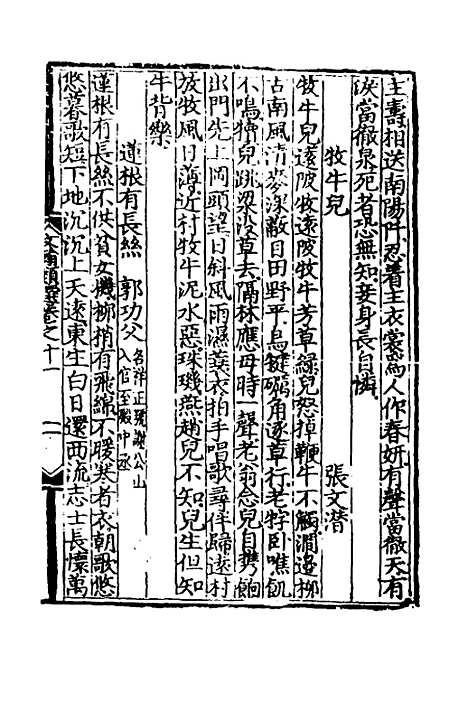 主壽相送南陽阡忍著主衣裳爲人作春妍有聲當徹天有
淚當徹泉死者恐無知妾身長自憐
牧牛兒 張文潜
牧牛兒遠陂牧遠陂牧牛芳草綠兒怒掉鞭牛不觸澗邊柳
古南風清麥深蔽日田野平烏犍礪角逐草行老牸卧噍飢
不鳴犢兒跳梁沒草去隔林應母時一聲老翁念兒自携餉
出門先上岡頭望日斜風雨濕蓑衣拍手唱歌尋伴歸遠村
放牧風日薄近村牧牛泥水惡珠璣燕趙兒不知兒生但知
牛背樂
蓮根有長絲 郭功父 名祥正號謝公山人官至殿中丞
蓮根有長絲不供貧女機柳梢有飛綿不暖寒者衣朝歌悠
悠暮歌短下地沉沉上天遠東生白日還西流志士長懷萬
卷之十一
二